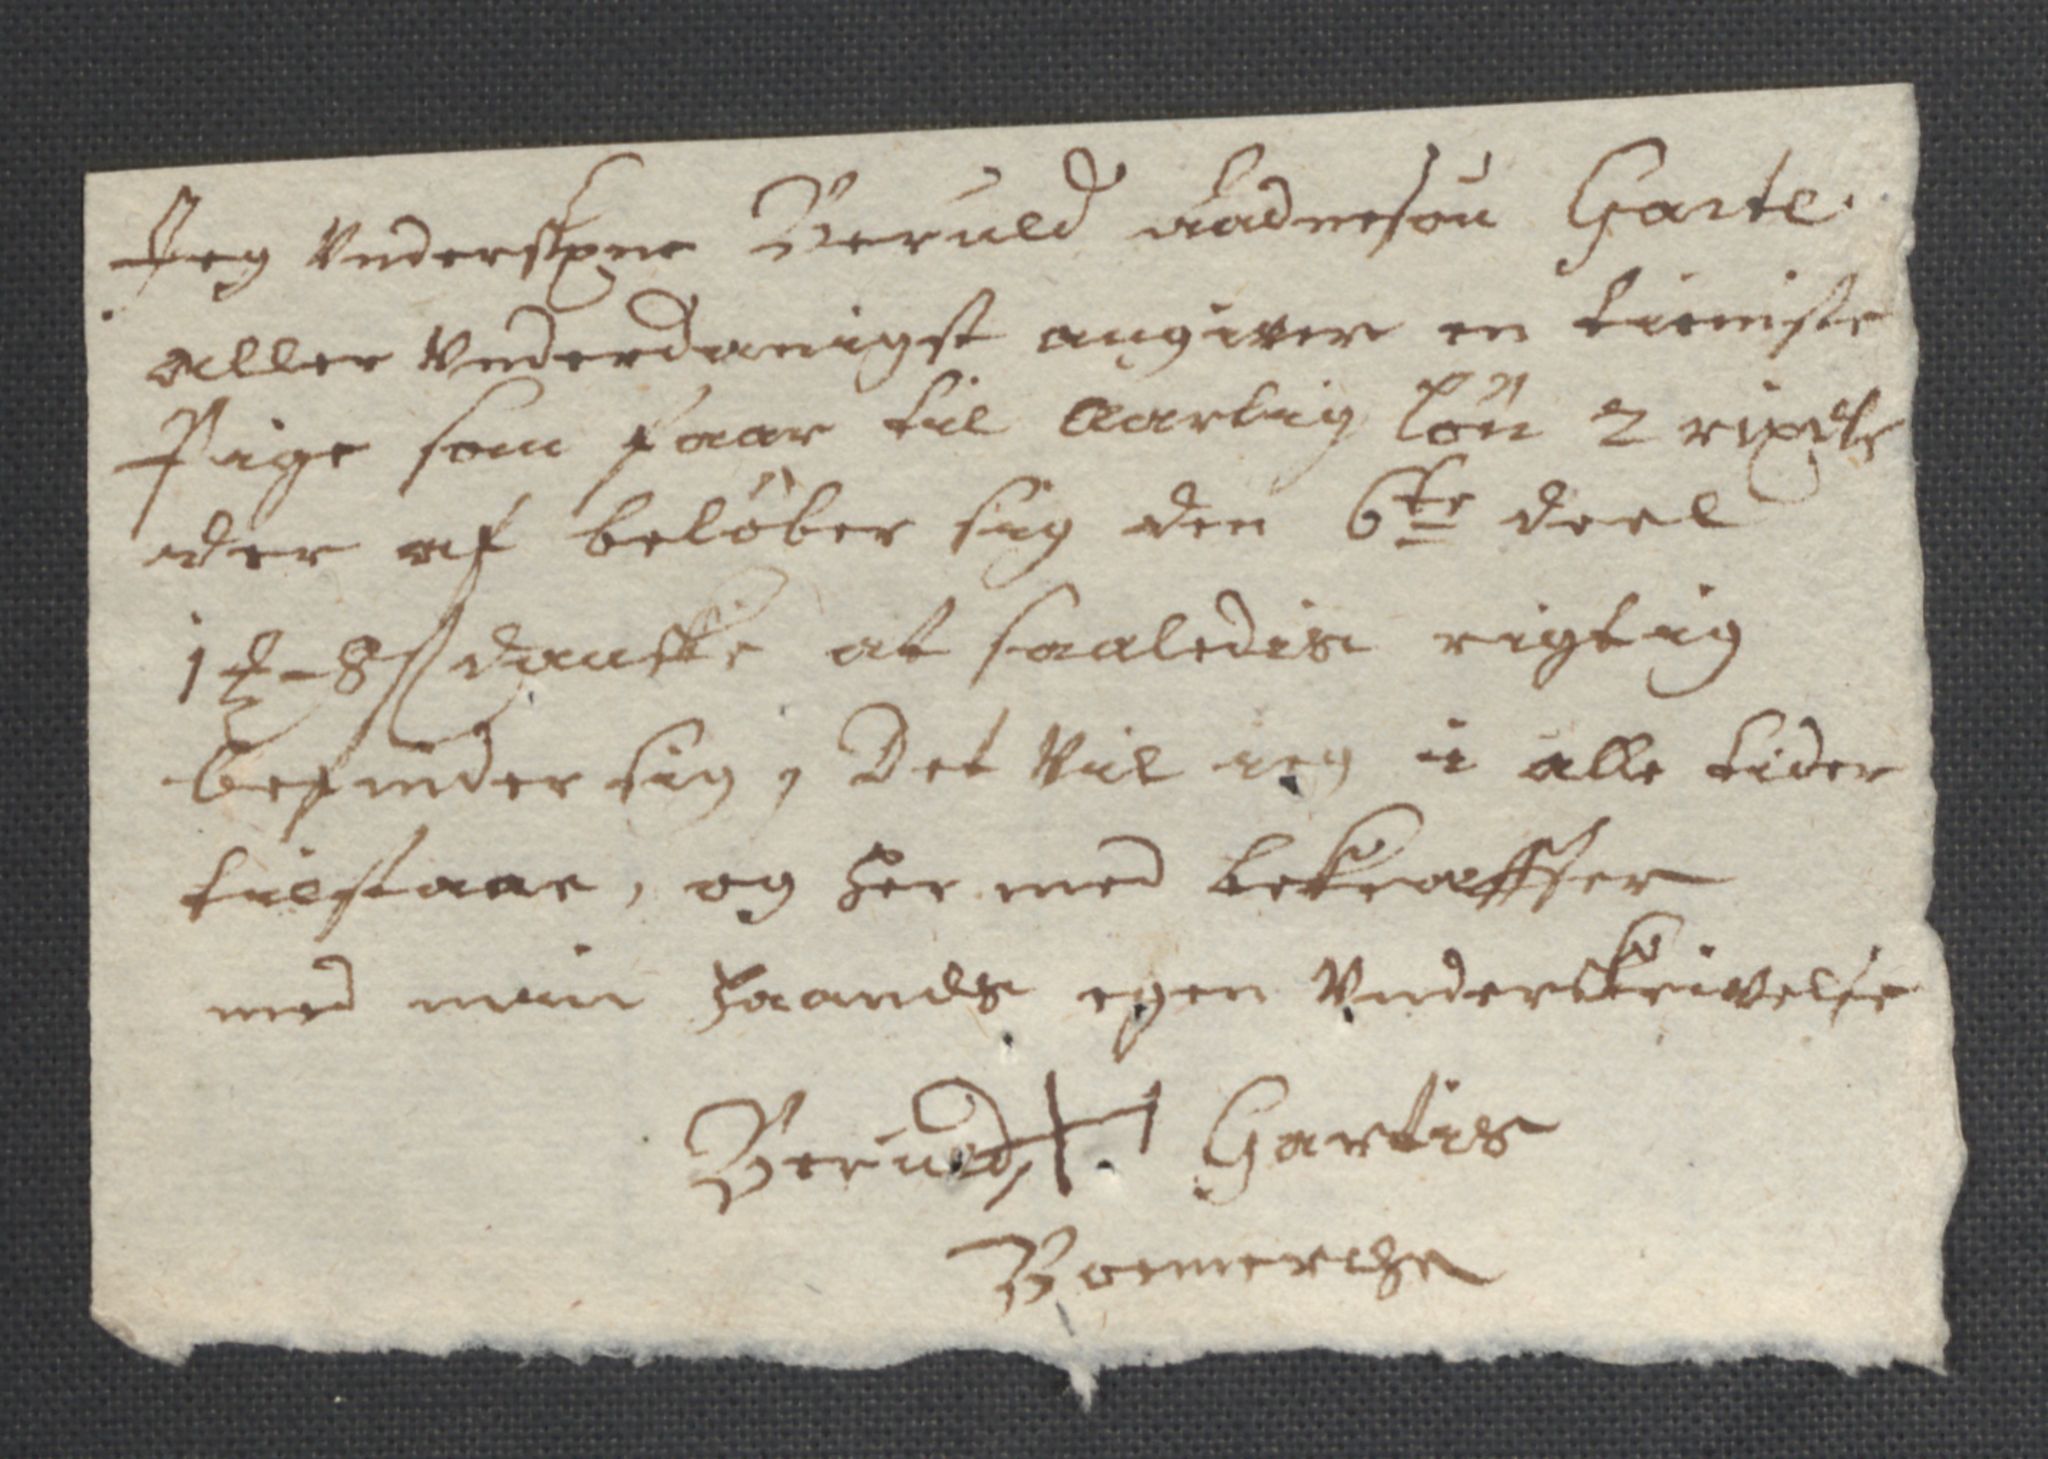 Jeg Underskrne Beruld Aadnesøn Garte
aller Underdanigst angiver en tieniste
Pige som faar til Aarlig løn 2 rixdlr
der af beløber sig den 6te deel
1 ₰ - 8 s danske at saaledis rigtig
befinder sig, Det Vil ieg i alle tider
tilstaae, og her med bekræffter
med min haands egen Underskrivelse
Beruld Gartis
Boemerche